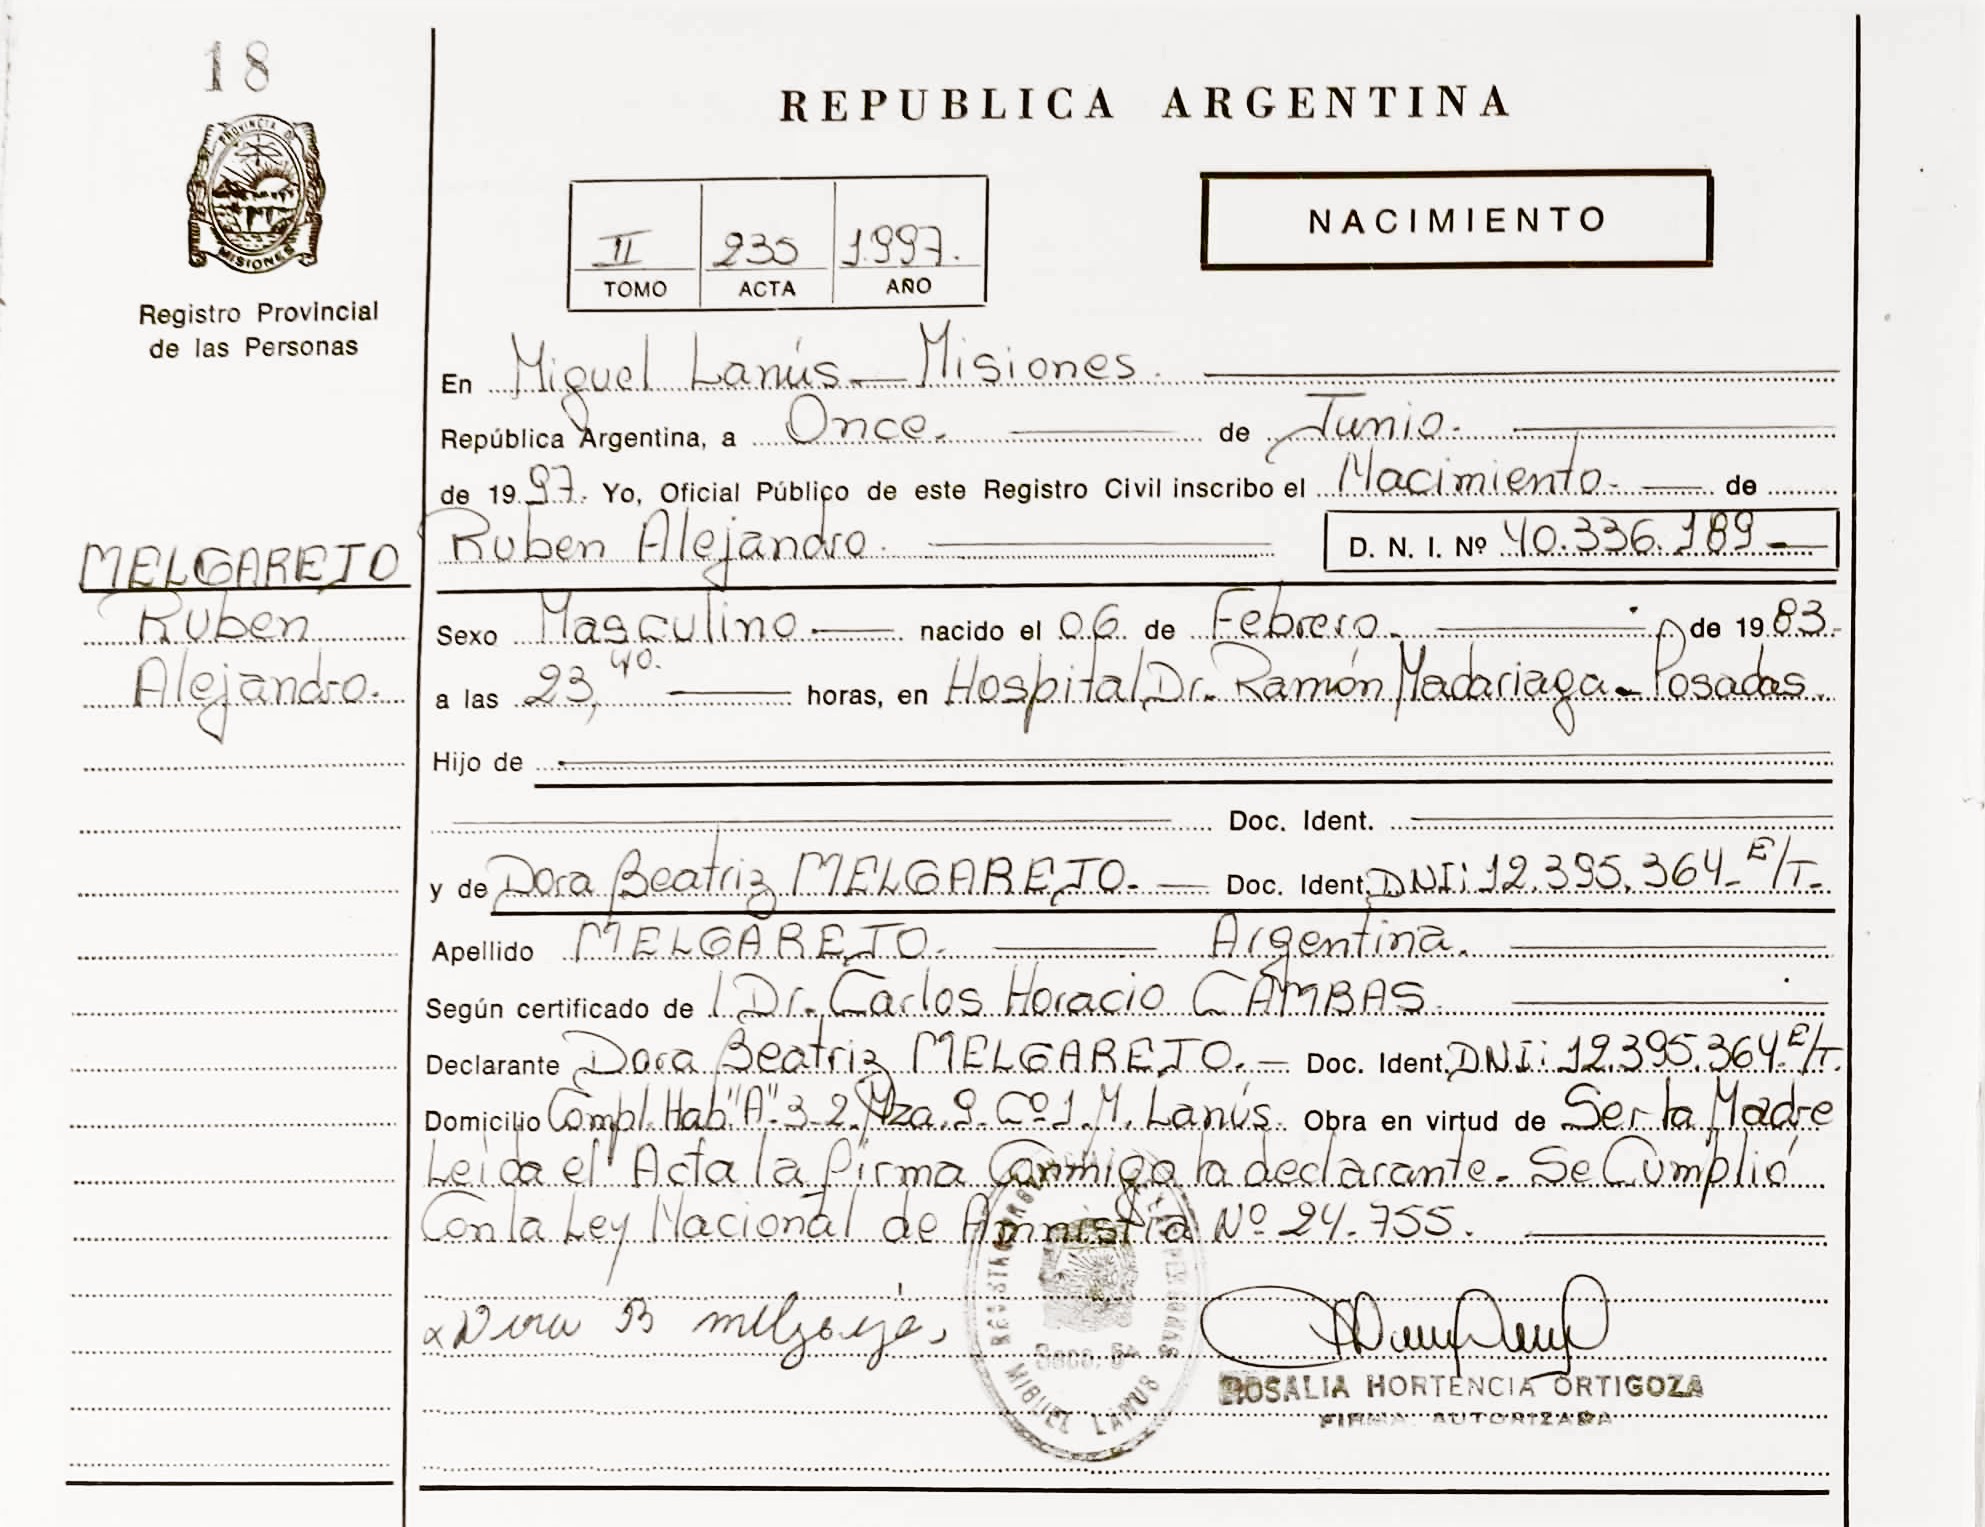 18
REPUBLICA ARGENTINA
PROVINCIA DE
MISIONES
Registro Provincial
de las Personas
II 235 1.997.
TOMO ACTA AÑO
NACIMIENTO
En Miguel Lanús - Misiones.
República Argentina, a Once. de Junio.
de 1997. Yo, Oficial Público de este Registro Civil inscribo el Nacimiento. de
Ruben Alejandro. D. N. I. Nº 40.336.189
MELGAREJO
Ruben
Alejandro.
Sexo Masculino nacido el 06 de Febrero. de 1983.
a las 23,40. horas, en Hospital Dr. Ramón Madariaga - Posadas.
Hijo de
Doc. Ident.
y de Dora Beatriz MELGAREJO. Doc. Ident. DNI: 12.395.364 E/T.
Apellido MELGAREJO. Argentina.
Según certificado de Dr. Carlos Horacio CAMBAS.
Declarante Dora Beatriz MELGAREJO. Doc. Ident. DNI: 12.395.364 E/T.
Domicilio Compl. Hab "A" 3-2. Mza. 9. Cº 1. M. Lanús. Obra en virtud de Ser la Madre
Leida el Acta la firma Conmigo la declarante. Se Cumplió
Con la Ley Nacional de Amnistia Nº 24.755.
MIGUEL LANUS
ROSALIA HORTENCIA ORTIGOZA
FIRMA AUTORIZADA